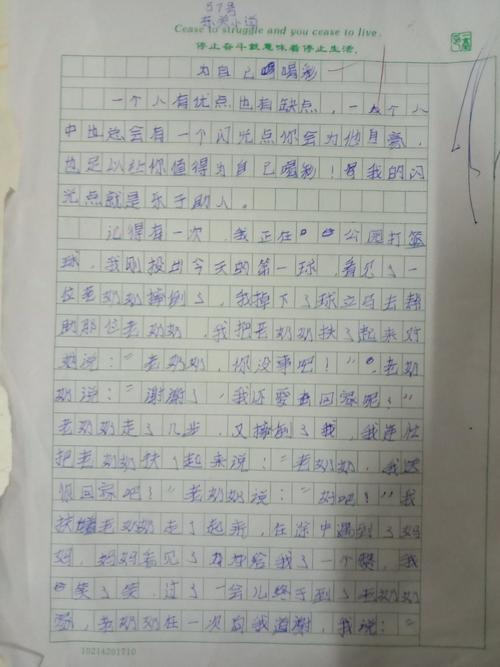 57号
Cease to struggle and you cease to live.
停止奋斗就意味着停止生活.
为自己喝喝彩
一个人有优点也有缺点，一个人
中也总会有一个闪光点你会为他自豪，
也足以让你值得为自己喝彩！我的闪
光点就是乐于助人。
记得有一次，我正在公园打篮
球，我刚投出今天的第一球，看见了一
位老奶奶摔倒了，我掉下了球立马去帮
助那位老奶奶，我把老奶奶扶了起来对
奶说：“老奶奶，你没事吧！”老奶
奶说：“谢谢了，我还要去回家呢！”
老奶奶走了几步，又摔倒了我，我连忙
把老奶奶扶了起来说：“老奶奶，我送
你回家吧！”老奶奶说：“好吧！”我
扶着老奶奶走了起来，在途中遇到了妈
妈，妈妈看见了给我了一个赞，我
笑了笑，过了一会儿终于到了老奶奶
家，老奶奶在一次向我道谢，我说：“
10214201710